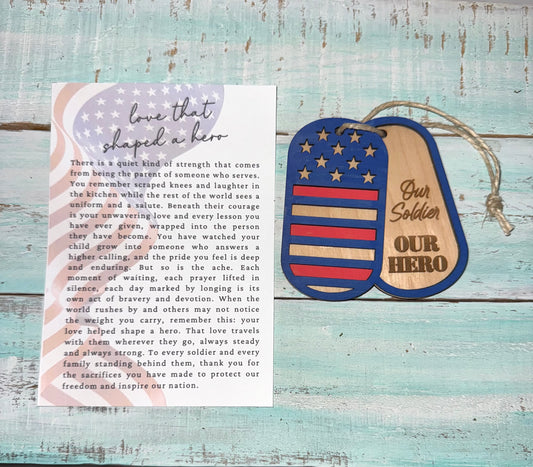 love that
shaped a hero
There is a quiet kind of strength that comes
from being the parent of someone who serves.
You remember scraped knees and laughter in
the kitchen while the rest of the world sees a
uniform and a salute. Beneath their courage
is your unwavering love and every lesson you
have ever given, wrapped into the person
they have become. You have watched your
child grow into someone who answers a
higher calling, and the pride you feel is deep
and enduring. But so is the ache. Each
moment of waiting, each prayer lifted in
silence, each day marked by longing is its
own act of bravery and devotion. When the
world rushes by and others may not notice
the weight you carry, remember this: your
love helped shape a hero. That love travels
with them wherever they go, always steady
and always strong. To every soldier and every
family standing behind them, thank you for
the sacrifices you have made to protect our
freedom and inspire our nation.
Our
Soldier
OUR
HERO